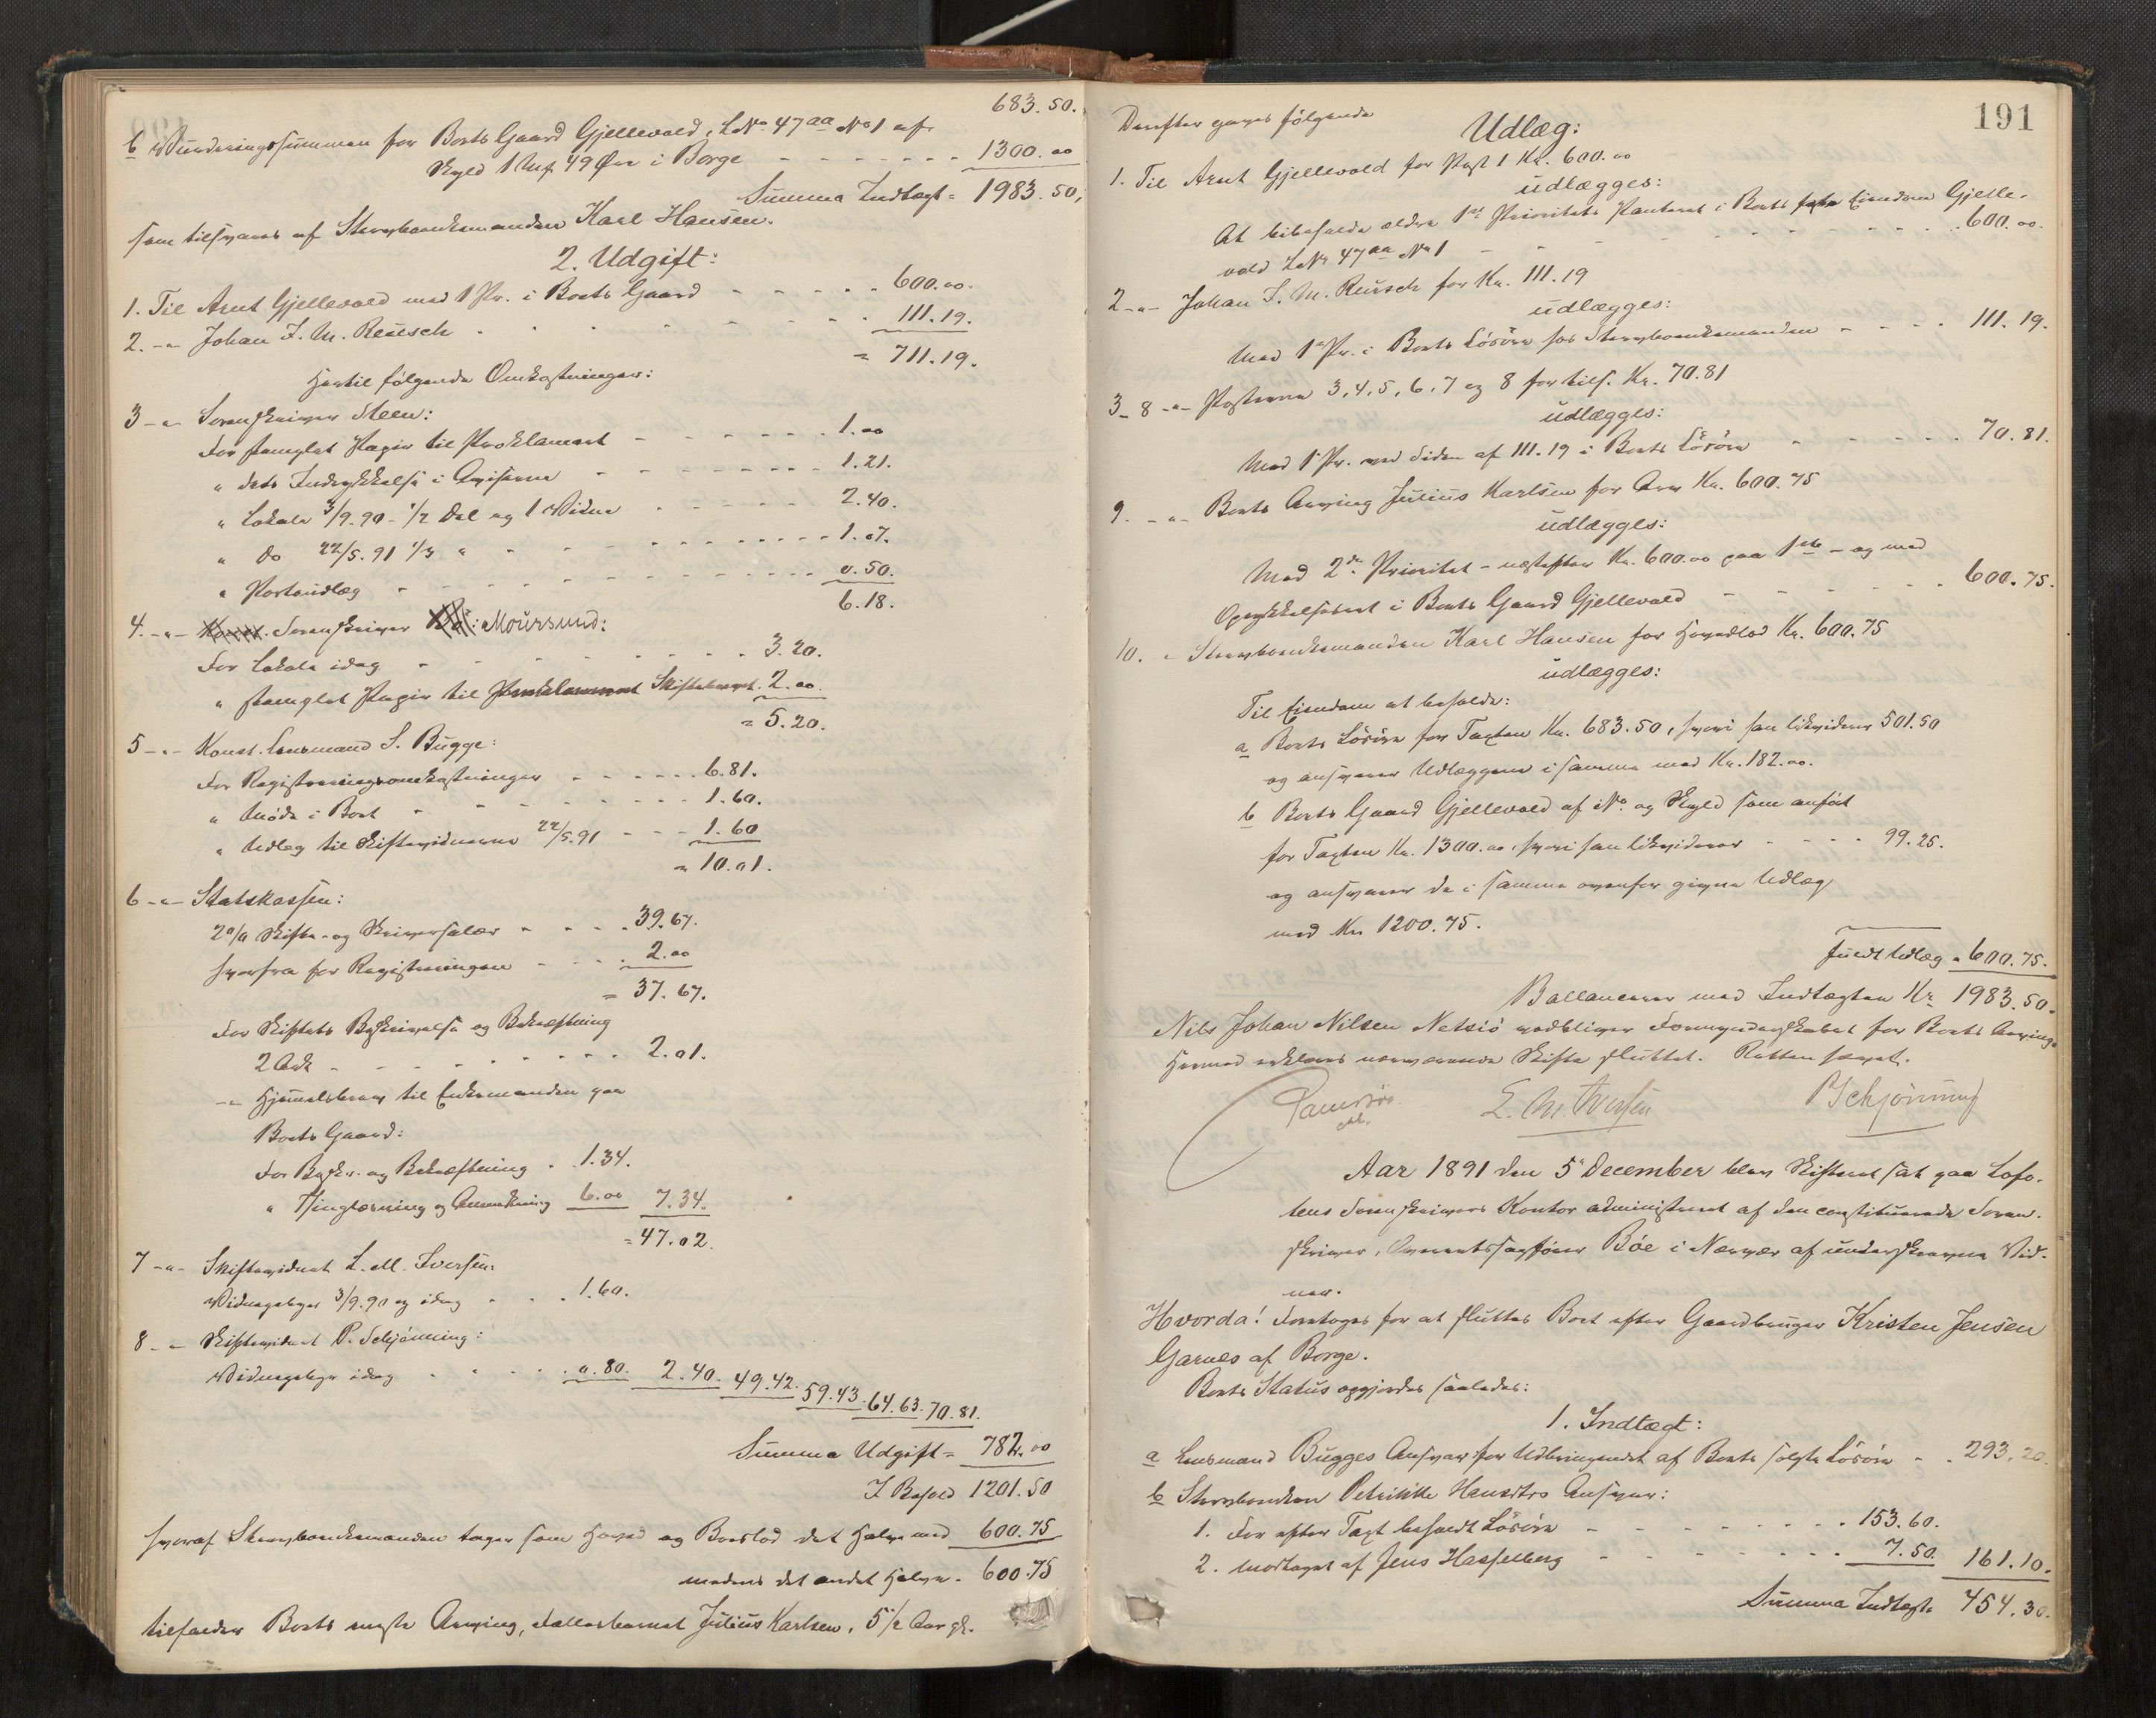 683.50.
b Vurderingssummen for Boets Gaard Gjellevold, L.No 47aa No 1 af
Skyld 1 Mk 49 Øre i Borge - - - - - - - 1300.00
Summa Indtægt = 1983.50,
som tilsvares af Stervboenkemanden Karl Hansen.
2. Udgift:
1. Til Arnt Gjellevold med 1 Pr. i Boets Gaard - - - - - 600.00.
2. -"- Johan F. M. Reusch - - - - - 111.19.
= 711.19.
Hertil følgende Omkostninger:
3 -"- Sorenskriver Steen:
For stemplet Papir til Proklamaet - - - - - 1.00
" dets Indrykkelse i Aviserne - - - - - 1.21.
" Lokale 3/9.90 - 1/2 Del og 1 Vidne - - - - 2.40.
" Do 22/5.91 1/3 " - - - - - 1.07.
" Portoudlæg - - - - - 0.50.
6.18.
4. -"- Sorenskriver Moursund:
For Lokale idag - - - - - 3.20.
" stemplet Papir til Proklamaet Skiftebrevet. 2.00.
= 5.20.
5 -"- Konst. Lensmand S. Bugge:
For Registreringsomkostninger - - - - - 6.81.
" Møde i Boet - - - - - 1.60.
" Udlæg til Skiftevidnerne 22/5.91 - - - 1.60
= 10.01.
6 -"- Statskassen:
2 0/0 Skifte- og Skriversalær - - - - 39.67.
herfra for Registreringen - - - - 2.00
= 37.67.
For Skiftets Beskrivelse og Bekræftning
2 Ark - - - - - 2.01.
-"- Hjemmelsbrev til Enkemanden paa
Boets Gaard:
For Beskr. og Bekræftning - 1.34.
" Thinglæsning og Anmerkning 6.00 7.34.
= 47.02.
7 -"- Skiftevidnet L. M. Iversen:
Vidnegebyr 3/9.90 og idag - - - 1.60.
8 -"- Skiftevidnet P. Schjønning:
Vidnegebyr idag - - - - 0.80. 2.40. 49.42. 59.43. 64.63. 70.81.
Summa Udgift = 782.00
I Behold 1201.50
hvoraf Stervboenkemanden tager som Hoved og Broslod det Halve med 600.75
medens det andet Halve - 600.75
tilfalder Boets eneste Arving, Fællesbarnet Julius Karlsen, 5 1/2 Aar gl.
191
Derefter gjøres følgende
Udlæg:
1. Til Arnt Gjellevold for Post 1 Kr. 600.00
udlægges:
At beholde ældre 1ste Prioritets Panteret i Boets Eiendom Gjelle-
vold L.No 47aa No 1 - - - - - 600.00.
2 -"- Johan F. M. Reusch for Kr. 111.19
udlægges:
Med 1ste Pr. i Boets Løsøre hos Stervboenkemanden - - - - 111.19.
3-8 -"- Posterne 3, 4, 5, 6, 7 og 8 for tils. Kr. 70.81
udlægges:
Med 1 Pr. ved Siden af 111.19 i Boets Løsøre - - - - - 70.81.
9. -"- Boets Arving Julius Karlsen for Arv Kr. 600.75
udlægges:
Med 2den Prioritet - næstefter Kr. 600.00 paa 1ste - og med
Oprykkelsesret i Boets Gaard Gjellevold - - - - - 600.75.
10. " Stervboenkemanden Karl Hansen for Hovedlod Kr. 600.75
udlægges:
Til Eiendom at beholde:
a Boets Løsøre for Taxten Kr. 683.50, hvori han likviderer 501.50
og ansvarer Udlæggene i samme med Kr. 182.00.
b Boets Gaard Gjellevold af No. og Skyld som anført
for Taxten Kr. 1300.00, hvori han likviderer - - - - 99.25.
og ansvarer de i samme ovenfor givne Udlæg
med Kr. 1200.75.
Fuldt Udlæg = 600.75.
Ballancerer med Indtægten Kr 1983.50.
Nils Johan Nilsen Netsiø vedbliver Formynderskabet for Boets Arving.
Hermed erklæres nærværende Skifte sluttet. Retten hævet.
L. M. Iversen
P Schjønning
Aar 1891 den 5 December blev Skifteret sat paa Lofo-
tens Sorenskrivers Kontor administreret af den constituerede Soren-
skriver, Overretssagfører Böe i Nærvær af underskrevne Vid-
ner.
Hvorda! Foretoges for at sluttes Boet efter Gaardbruger Kristen Jensen
Garnes af Borge.
Boets Status opgjordes saaledes:
1. Indtægt:
a Lensmand Bugges Ansvar for Udbringendet af Boets solgte Løsøre - - 293.20.
b Stervboenken Petrikke Hansdtrs Ansvar:
1. For efter Taxt beholdt Løsøre - - - - - 153.60.
2. modtaget af Jens Hasselberg - - - - - 7.50. 161.10.
Summa Indtægt 454.30.